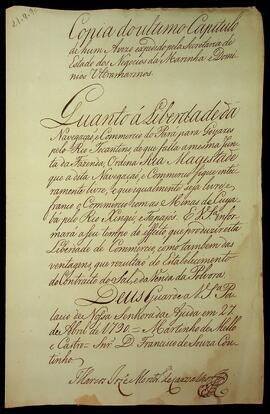 Copia do ultimo Capitulo
de hum Avizo expedido pela Secretaria de
Estado dos Negocios da Marinha e Domi
nios Ultramarinos
Quanto á Liberdade da
Navegação, e Commercio do Pará para Goyazes
pelo Rio Tocantins, de que falla a mesma Jun
ta da Fazenda; Ordena Sua Magestade
que a dita Navegação, e Commercio fique intei
ramente livre, e que igualmente seja livre, e
franco o Commercio com as Minas de Cuya
bá pelo Rio Xingú, e Tapajós. E V. S.ª infor
mará a seu tempo do effeito que produzir esta
Liberdade de Commercio, como tambem das
ventagens, que resultão do Estabelecimento
do Contracto do Sal, e da Venda da Polvora.
Deus Guarde a V. S.ª Pa
lacio de Nossa Senhora da Ajuda em 27
de Abril de 1790 = Martinho de Mello
e Castro = Snr. D. Francisco de Souza Cou
tinho.